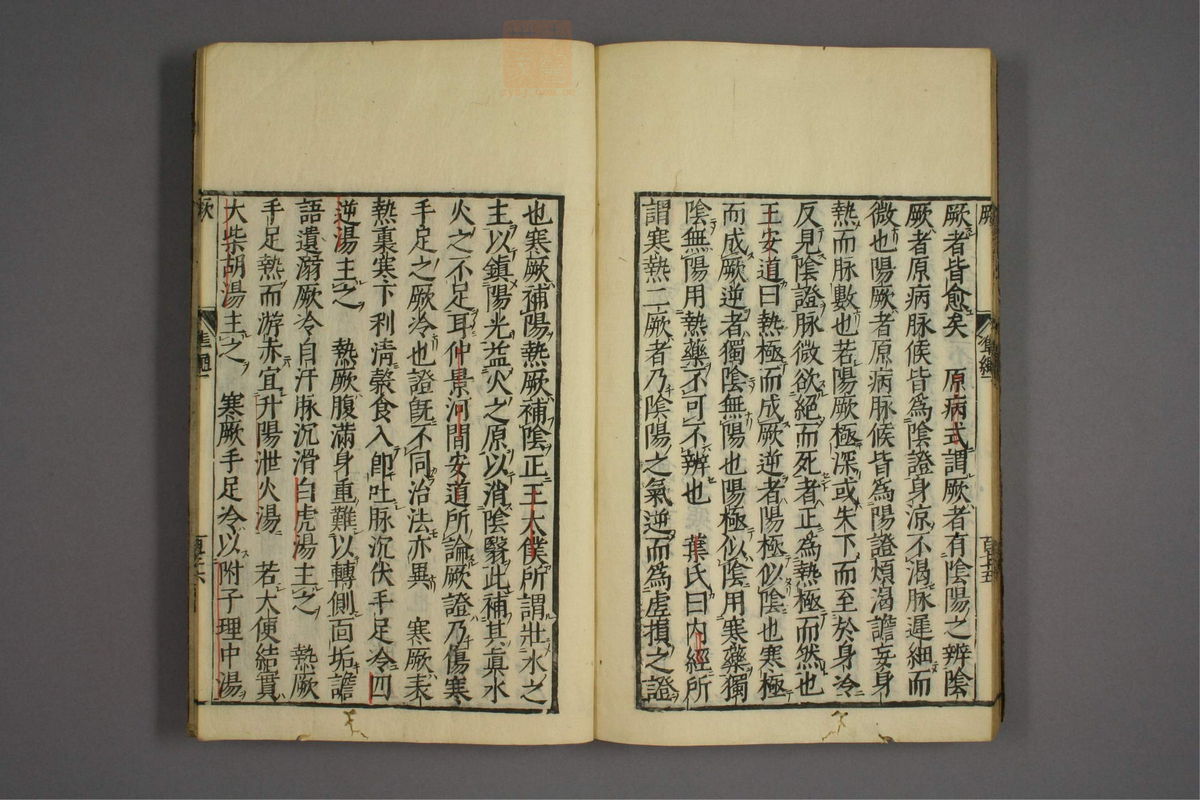 厥者皆愈矣　原病式謂厥者有陰陽之辨陰
厥者原病脉候皆爲陰證身涼不渴脉遲細而
微也陽厥者原病脉候皆爲陽證煩渴譫妄身
熱而脉數也若陽厥極深或失下而至於身冷
反見陰證脉微欲絕而死者正爲熱極而然也
王安道曰熱極而成厥逆者陽極似陰也寒極
而成厥逆者獨陰無陽也陽極似陰用寒藥獨
陰無陽用熱藥不可不辨也　葉氏曰内經所
謂寒熱二厥者乃陰陽之氣逆而爲虚損之證
也寒厥補陽熱厥補陰正王太僕所謂壯水之
主以鎮陽光益火之原以消陰翳此補其眞水
火之不足耳仲景河間安道所論厥證乃傷寒
手足之厥冷也證旣不同治法亦異　寒厥表
熱裏寒下利清穀食入卽吐脉沉伏手足冷四
逆湯主之　熱厥腹滿身重難以轉側面垢譫
語遺溺厥冷自汗脉沉滑白虎湯主之　熱厥
手足熱而游赤宜升陽泄火湯　若大便結實
大柴胡湯主之　寒厥手足冷以附子理中湯